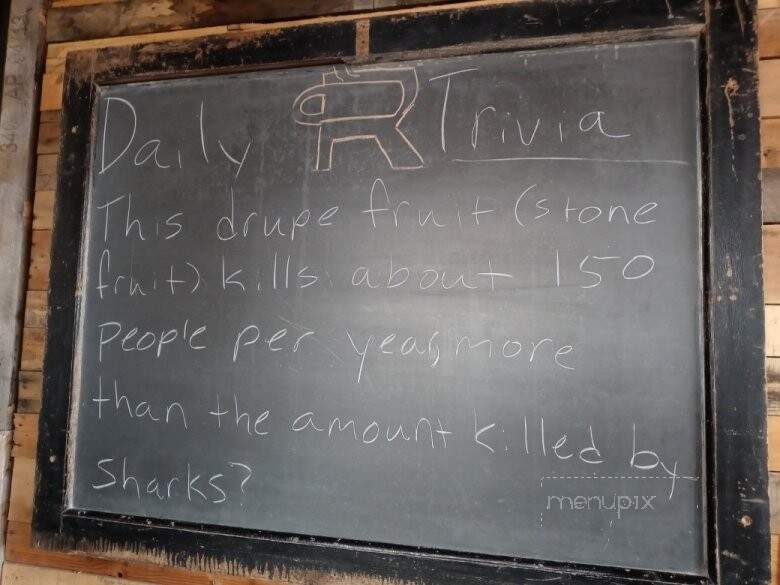 Daily Trivia
This drupe fruit (stone
fruit) kills about 150
people per year, more
than the amount killed by
Sharks?
menupix